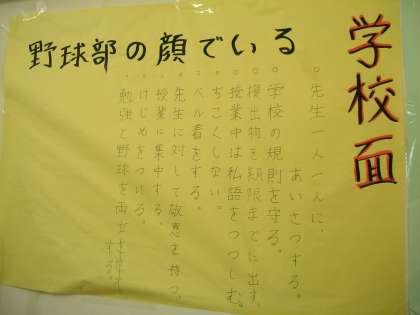 学校面
野球部の顔でいる
○先生一人一人に、
あいさつする。
○学校の規則を守る。
○提出物を期限までに出す。
○授業中は私語をつつしむ。
○ちこくしない。
・ベル着をする。
・先生に対して敬意を持つ。
・授業に集中する。
・けじめをつける。
・勉強と野球を両立させ
する。